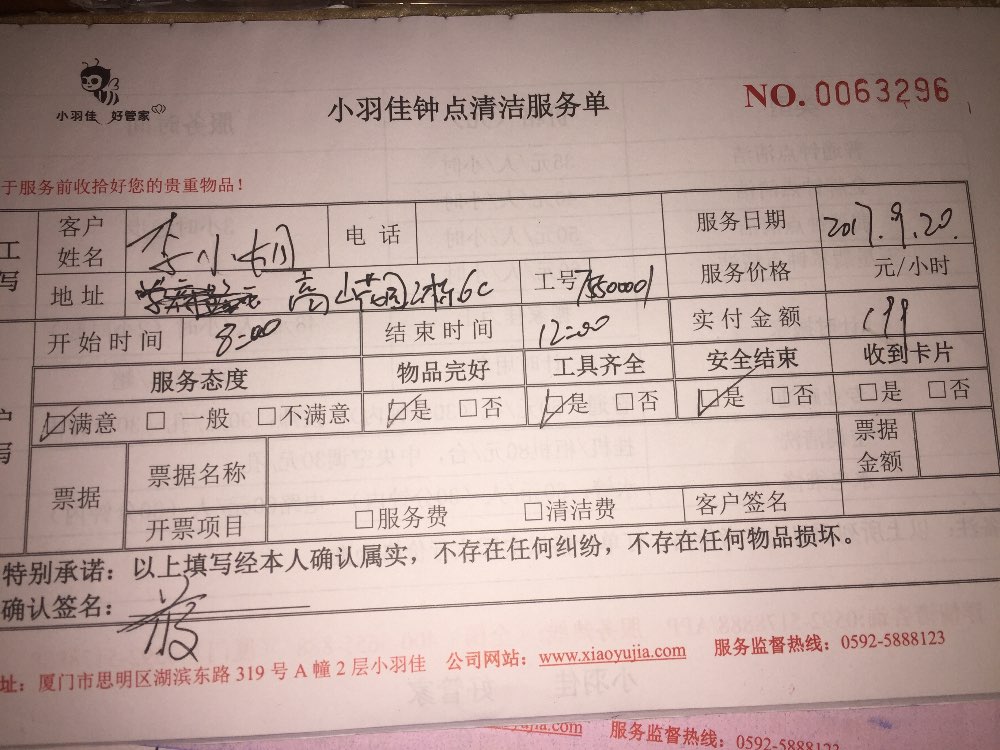 小羽佳 好管家
小羽佳钟点清洁服务单
NO. 0063296
于服务前收拾好您的贵重物品！
工
写
客户姓名 李小姐 电话 服务日期 2017.9.20.
地址 2栋6C 工号 服务价格 元/小时
开始时间 8:00 结束时间 12:00 实付金额 199
服务态度 物品完好 工具齐全 安全结束 收到卡片
户
写
☑满意 □ 一般 □不满意 ☑是 □否 ☑是 □否 ☑是 □否 □是 □否
票据 票据名称 票据金额
开票项目 □服务费 □清洁费 客户签名
特别承诺：以上填写经本人确认属实，不存在任何纠纷，不存在任何物品损坏。
确认签名：
址：厦门市思明区湖滨东路 319 号 A 幢 2 层小羽佳 公司网站：www.xiaoyujia.com 服务监督热线：0592-5888123
jia.com 服务监督热线：0592-5888123